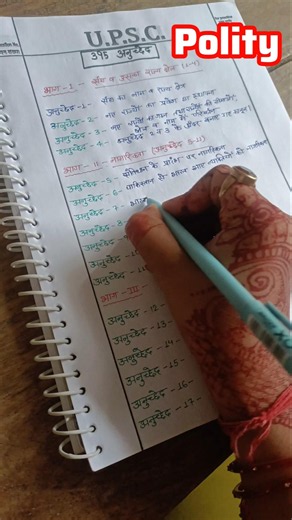 Polity
U.P.S.C.
395 अनुच्छेद
भाग - I - संघ व उसका राज्य क्षेत्र (1-4)
अनुच्छेद - 1 - संघ का नाम व राज्य क्षेत्र
अनुच्छेद - 2 - नए राज्यों का प्रवेश या स्थापना
अनुच्छेद - 3 - नए राज्यों का तथा
क्षेत्र व नाम में परिवर्तन
अनुच्छेद - 4 - अनुच्छेद 2 व 3 के अंतर्गत बनाए गए कानून
भाग - II - नागरिकता (अनुच्छेद 5-11)
अनुच्छेद - 5 - संविधान के प्रारंभ पर नागरिकता
अनुच्छेद - 6 - पाकिस्तान से भारत आए व्यक्तियों की नागरिकता
अनुच्छेद - 7 - भारत
अनुच्छेद - 8
अनुच्छेद
अनुच्छेद
अनुच्छेद - 11
भाग - III -
अनुच्छेद - 12 -
अनुच्छेद - 13 -
अनुच्छेद - 14 -
अनुच्छेद - 15 -
अनुच्छेद - 16 -
अनुच्छेद - 17 -